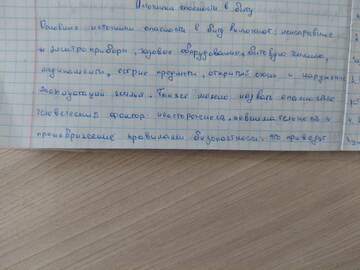 Источники опасности в быту
Основные источники опасности в быту включают: неисправные
и электроприборы, газовое оборудование, бытовую химию,
медикаменты, острые предметы, открытый огонь и нарушение
эксплуатации жилья. Также можно назвать опасностью
человеческий фактор: неосторожность, невнимательность и
пренебрежение правилами безопасности. Это приводит